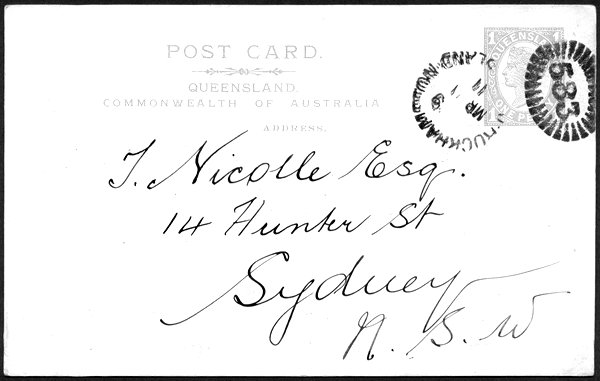 POST CARD.
QUEENSLAND.
COMMONWEALTH OF AUSTRALIA
ADDRESS.
1 QUEENSLAND
583
MR 11
J. Nicolle Esq.
14 Hunter St
Sydney
N. S. W